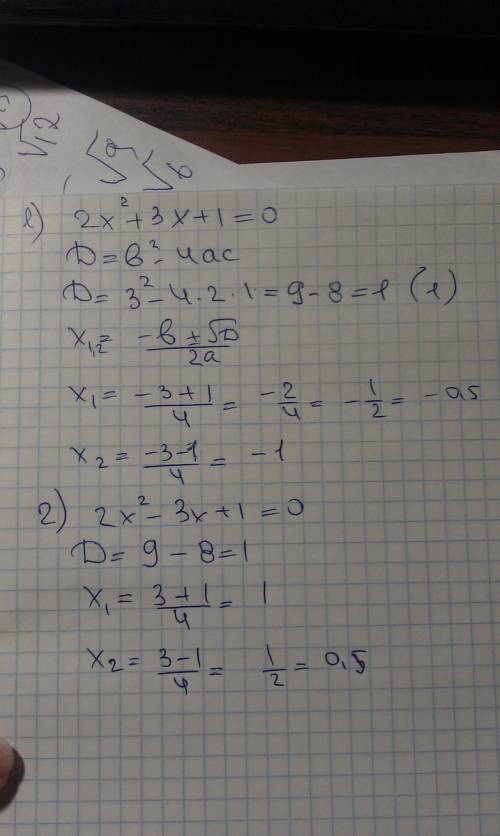 1) 2x² + 3x + 1 = 0
D = в² - 4ac
D = 3² - 4 · 2 · 1 = 9 - 8 = 1 (1)
x₁,₂ = (-в ± √D)/(2a)
x₁ = (-3 + 1)/4 = -2/4 = -1/2 = -0,5
x₂ = (-3 - 1)/4 = -1
2) 2x² - 3x + 1 = 0
D = 9 - 8 = 1
x₁ = (3 + 1)/4 = 1
x₂ = (3 - 1)/4 = 1/2 = 0,5